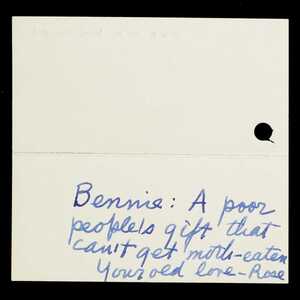 Bennie: A poor
people's gift that
can't get moth-eaten
Your old love-Rose